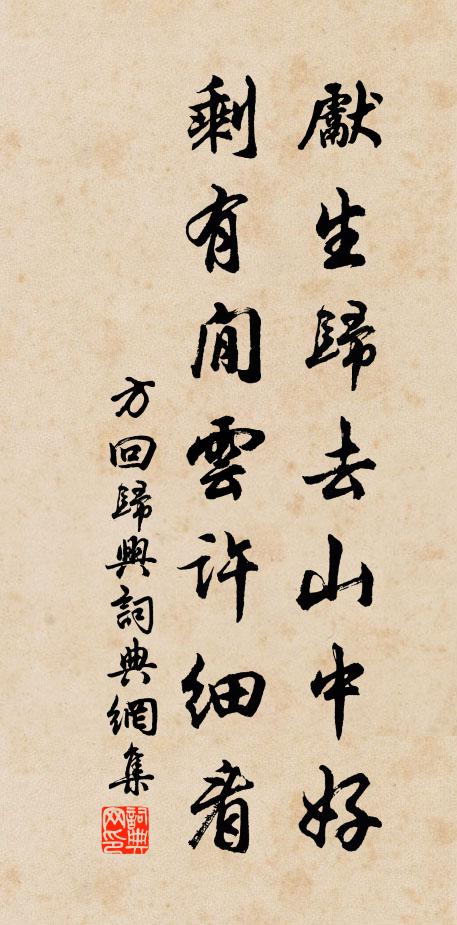 獻生歸去山中好
剩有閒雲許細看
方回歸興詞典網集
詞典
网印